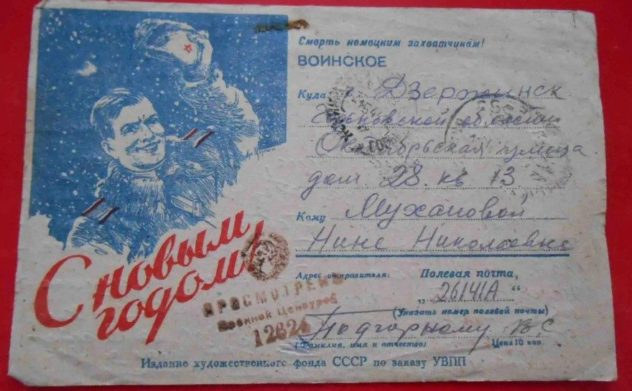 С новым
годом!
Смерть немецким захватчикам!
ВОИНСКОЕ
Куда г. Дзержинск
Горьковской области
Октябрьская улица
дом 28 кв 13
Кому Мухановой
Нине Николаевне
Адрес отправителя: Полевая почта,
„ 26141А "
(Указать номер полевой почты)
Подгорному В. С
(Фамилия, имя и отчество) Цена 10 коп.
ПРОСМОТРЕНО
Военной Цензурой
12824
Издание художественного фонда СССР по заказу УВПП